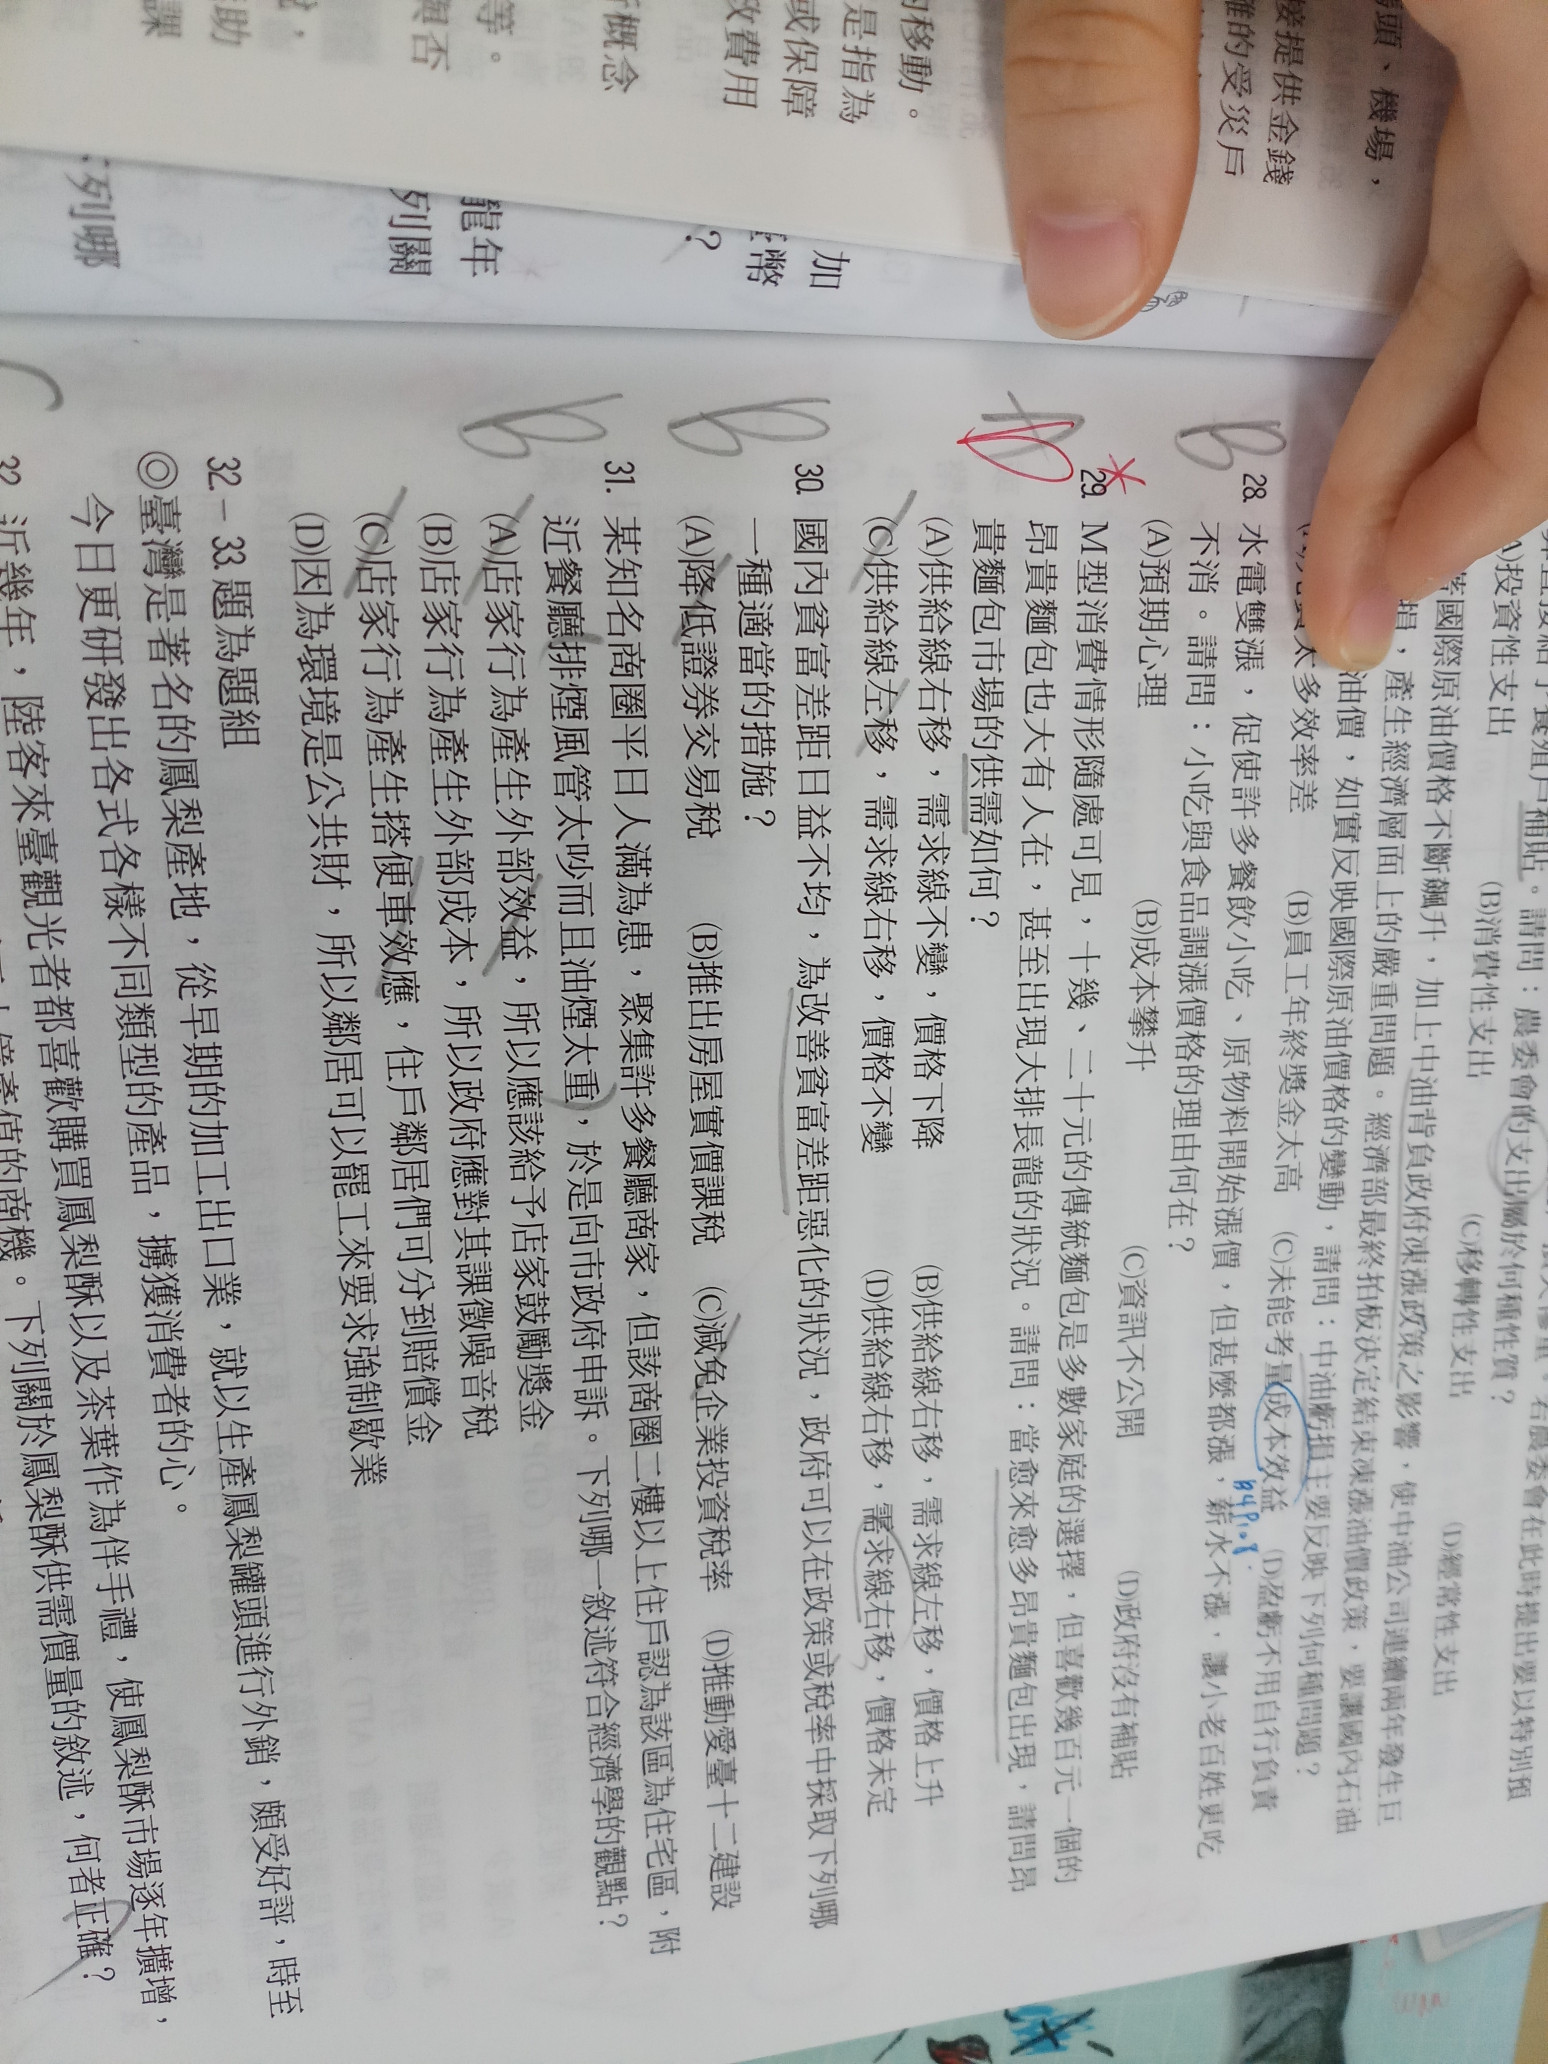 碼頭、機場，
接提供金錢
難的受災戶
內移動。
是指為
或保障
政費用
概念
等。
與否
助
課
加
幣
？
龍年
列關
列哪
補貼。請問：農委會的支出屬於何種性質？
(A)投資性支出 (B)消費性支出 (C)移轉性支出 (D)經常性支出
國際原油價格不斷飆升，加上中油背負政府凍漲政策之影響，使中油公司連續兩年發生巨
損，產生經濟層面上的嚴重問題。經濟部最終拍板決定結束凍漲油價政策，要讓國內石油
油價，如實反映國際原油價格的變動，請問：中油虧損主要反映下列何種問題？
太多效率差 (B)員工年終獎金太高 (C)未能考量成本效益 (D)盈虧不用自行負責
B
28. 水電雙漲，促使許多餐飲小吃、原物料開始漲價，但甚麼都漲，薪水不漲，讓小老百姓更吃
不消。請問：小吃與食品調漲價格的理由何在？
(A)預期心理 (B)成本攀升 (C)資訊不公開 (D)政府沒有補貼
D
29. M型消費情形隨處可見，十幾、二十元的傳統麵包是多數家庭的選擇，但喜歡幾百元一個的
昂貴麵包也大有人在，甚至出現大排長龍的狀況。請問：當愈來愈多昂貴麵包出現，請問昂
貴麵包市場的供需如何？
(A)供給線右移，需求線不變，價格下降 (B)供給線右移，需求線左移，價格上升
(C)供給線左移，需求線右移，價格不變 (D)供給線右移，需求線右移，價格未定
B
30. 國內貧富差距日益不均，為改善貧富差距惡化的狀況，政府可以在政策或稅率中採取下列哪
一種適當的措施？
(A)降低證券交易稅 (B)推出房屋實價課稅 (C)減免企業投資稅率 (D)推動愛臺十二建設
B
31. 某知名商圈平日人滿為患，聚集許多餐廳商家，但該商圈二樓以上住戶認為該區為住宅區，附
近餐廳排煙風管太吵而且油煙太重，於是向市政府申訴。下列哪一敘述符合經濟學的觀點？
(A)店家行為產生外部效益，所以應該給予店家鼓勵獎金
(B)店家行為產生外部成本，所以政府應對其課徵噪音稅
(C)店家行為產生搭便車效應，住戶鄰居們可分到賠償金
(D)因為環境是公共財，所以鄰居可以罷工來要求強制歇業
32.－33.題為題組
◎臺灣是著名的鳳梨產地，從早期的加工出口業，就以生產鳳梨罐頭進行外銷，頗受好評，時至
今日更研發出各式各樣不同類型的產品，擄獲消費者的心。
32. 近幾年，陸客來臺觀光者都喜歡購買鳳梨酥以及茶葉作為伴手禮，使鳳梨酥市場逐年擴增，
產值的商機。下列關於鳳梨酥供需價量的敘述，何者正確？